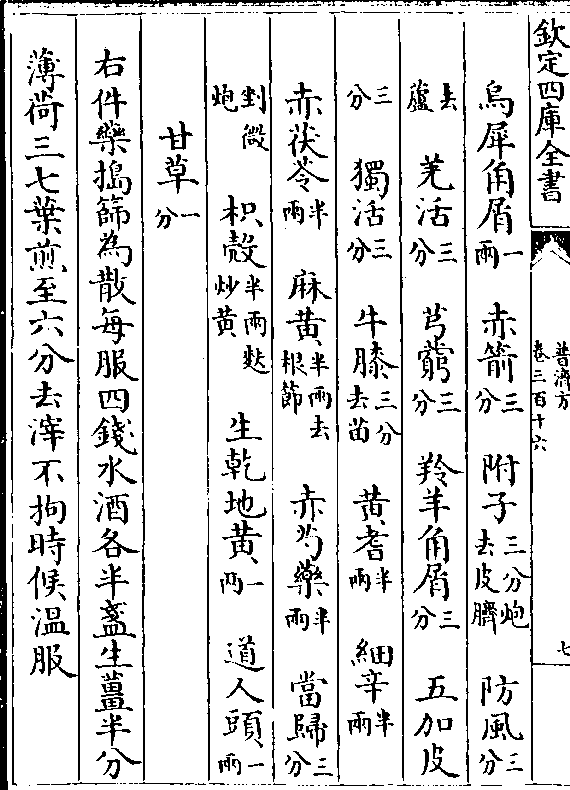 欽定四庫全書
普濟方
卷三百十六
七
烏犀角屑一兩 赤箭三分 附子三分炮去皮臍 防風三分
去蘆 羌活三分 芎藭三分 羚羊角屑三分 五加皮
三分 獨活三分 牛膝三分去苗 黄耆半兩 細辛半兩
赤茯苓半兩 麻黄半兩去根節 赤芍藥半兩 當歸三分
剉微炮 枳殻半兩麩炒黄 生乾地黄一兩 道人頭一兩
甘草一分
右件藥搗篩為散每服四錢水酒各半盞生薑半分
薄荷三七葉煎至六分去滓不拘時候温服